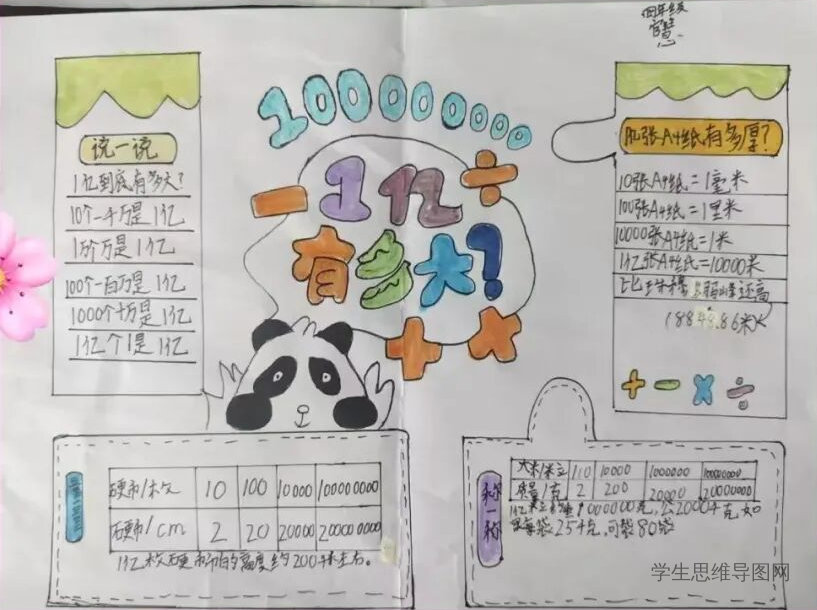 四年级
1000000000
1亿
有多大?
说一说
1亿到底有多大?
10个一千万是1亿
1万个万是1亿
100个一百万是1亿
1000个十万是1亿
1亿个1是1亿
1亿张A4纸有多厚?
10张A4纸=1毫米
100张A4纸=1厘米
10000张A4纸=1米
1亿张A4纸=10000米
比珠穆朗玛峰还高
量一量
硬币/枚 10 100 10000 100000000
硬币/cm 2 20 20000 20000000
1亿枚硬币的高度约200千米左右。
称一称
大米/粒 10000 1000000
质量/克 2 200 20000 20000000
可装80袋
学生思维导图网